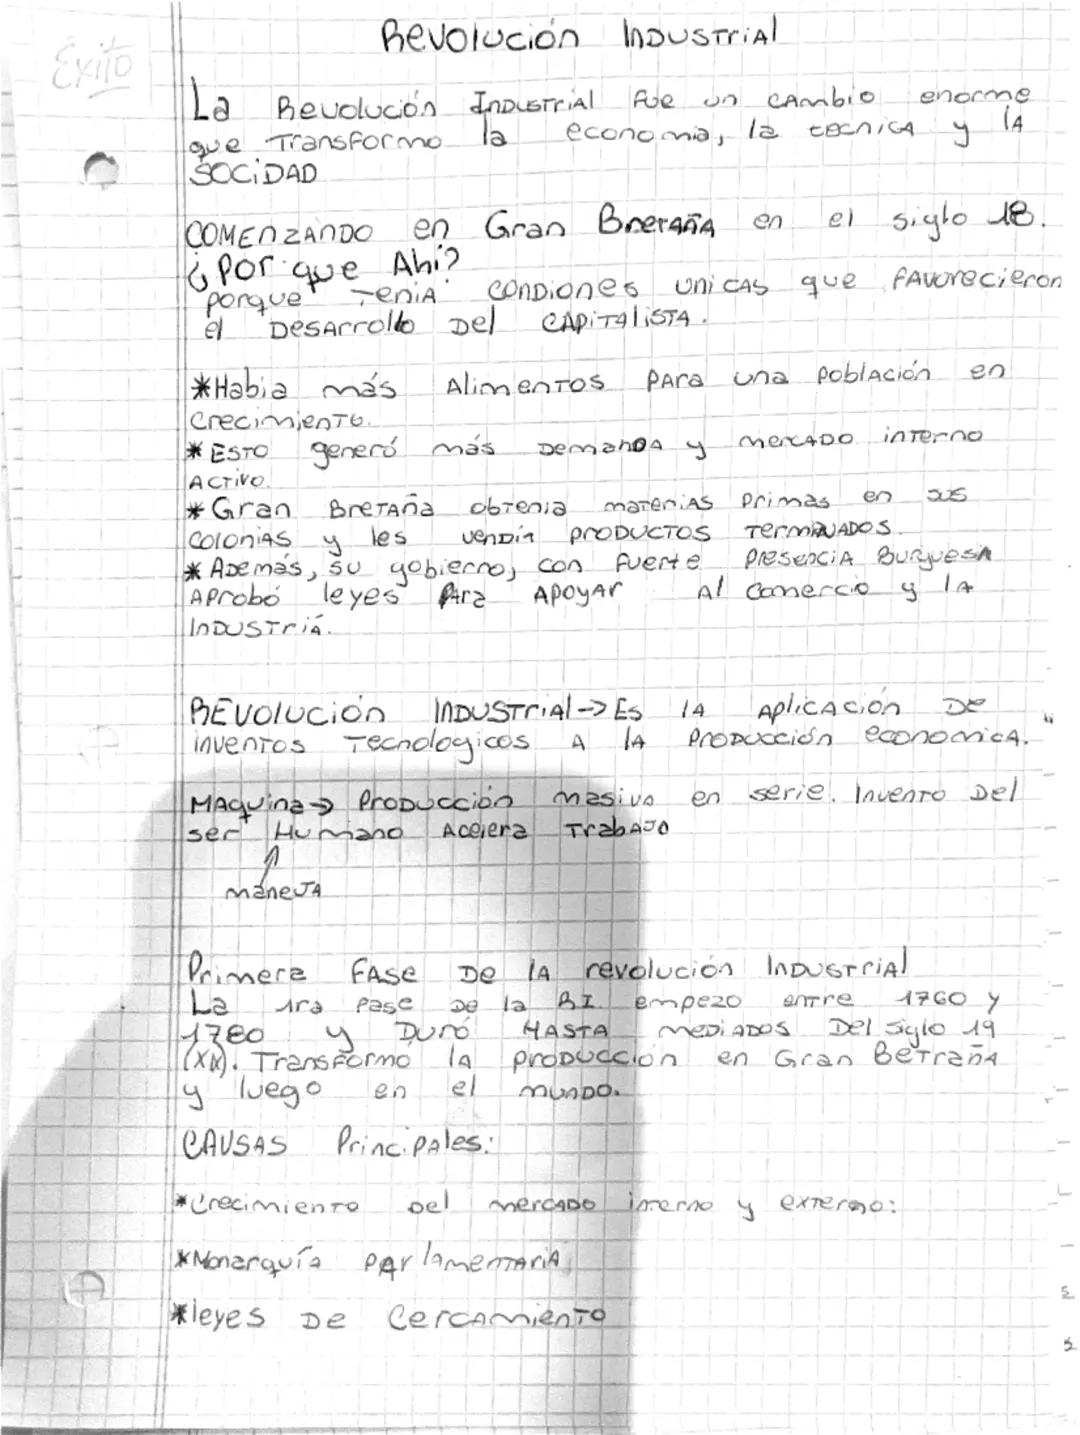 Revolución INDUSTriAl
Éxito
La Revolución INDUSTriAl Fue un CAmbio enorme
que TransFormo la economia, la tecnicA y lA
SOCiDAD
COMEnZANDO en Gran BreTAÑA en el siglo 18.
¿POr que Ahi?
porque TeniA conDiones uniCAS que fAvorecieron
el DesArrollo Del CAPiTAliSTA.
*Habia más AlimenTOS PAra una PoblACión en
CrecimienTo.
*ESTO generó más DemanDA y merCADO inTerno
ACTIVO.
*Gran BreTAña obTenia maTeriAS Primas en sus
ColoniAS y les venDía PRODUCTOS TERMINADOS.
*ADemás, su gobierno, con fuerte PresenciA BurguesA
AProbó leyes PAra APoyAr Al Comercio y lA
INDUSTriA.
REVOlUCión INDUSTriAl→Es lA AplicACión De
invenTos Tecnologicos A lA PRODUCCión economicA.
MAquina→ PRODUCCión masivA en serie. InvenTo Del
ser Humano Acelera TrabAJO
maneJA
Primera FASe De lA revolución INDUSTriAl
La 1ra Fase De la R.I. empezo enTre 1760 y
1780 y Duró HASTA meDiADOS Del siglo 19
(XIX). TransFormo lA PRODUCCión en Gran BeTrañA
y luego en el munDo.
CAUSAS PrinciPAles:
*CrecimienTo Del merCADO inTerno y exTerno:
*Monarquía PArlamenTAriA
*leyes De CercAmienTO